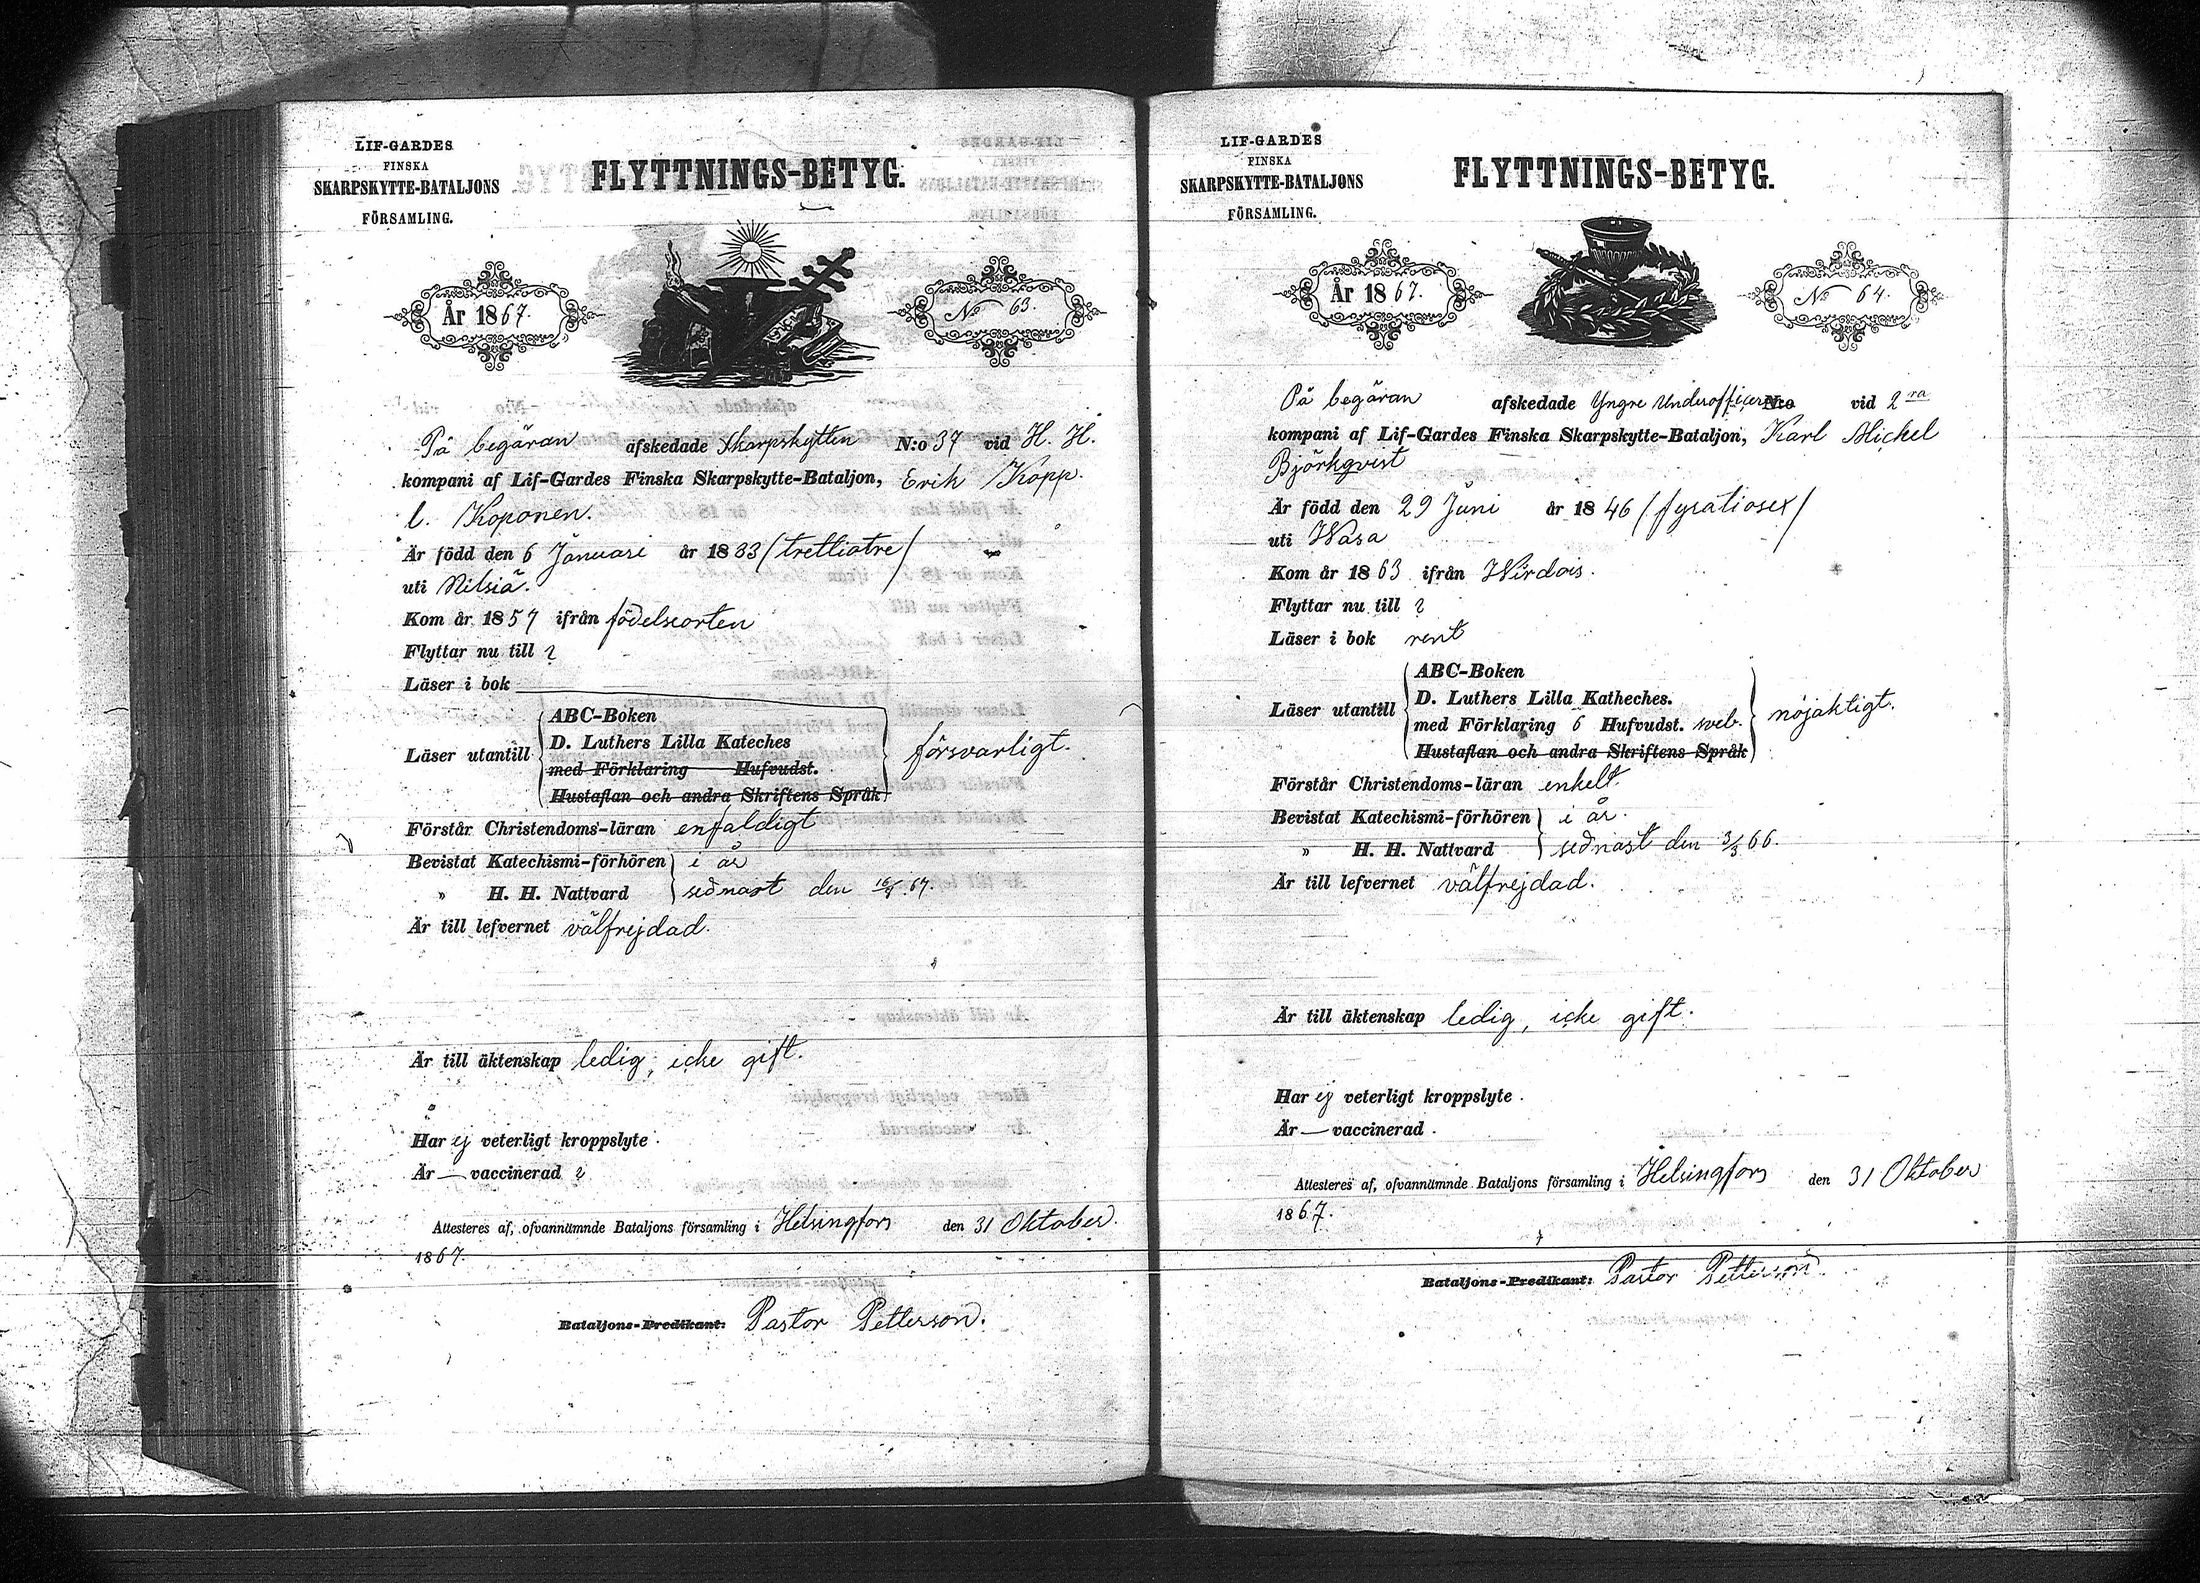 LIF-GARDES
FINSKA
SKARPSKYTTE-BATALJONS
FÖRSAMLING.
FLYTTNINGS-BETYG.
År 1867.
No 63.
På begäran afskedade Skarpskytten N:o 37 vid H. H.
kompani af Lif-Gardes Finska Skarpskytte-Bataljon, Erik Kopp.
l. Koponen.
Är född den 6 Januari år 1833 (trettiotre)
uti Nilsiä.
Kom år 1857 ifrån födelseorten
Flyttar nu till ?
Läser i bok
Läser utantill
ABC-Boken
D. Luthers Lilla Kateches
med Förklaring Hufvudst.
Hustaflan och andra Skriftens Språk
försvarligt.
Förstår Christendoms-läran enfaldigt
Bevistat Katechismi-förhören i år
" H. H. Nattvard sednast den 16/4 67.
Är till lefvernet välfrejdad.
Är till äktenskap ledig, icke gift.
Har ej veterligt kroppslyte.
Är — vaccinerad ?
Attesteres af, ofvannämnde Bataljons församling i Helsingfors den 31 Oktober.
1867.
Bataljons-Predikant: Pastor Petterson.
LIF-GARDES
FINSKA
SKARPSKYTTE-BATALJONS
FÖRSAMLING.
FLYTTNINGS-BETYG.
År 1867.
No 64.
På begäran afskedade Yngre Underofficeren N:o vid 2ra
kompani af Lif-Gardes Finska Skarpskytte-Bataljon, Karl Michel
Björkqvist
Är född den 29 Juni år 1846 (fyratiosex)
uti Wasa
Kom år 1863 ifrån Wirdois.
Flyttar nu till ?
Läser i bok rent
Läser utantill
ABC-Boken
D. Luthers Lilla Katheches.
med Förklaring 6 Hufvudst. sveb.
Hustaflan och andra Skriftens Språk
nöjaktigt.
Förstår Christendoms-läran enkelt.
Bevistat Katechismi-förhören i år.
" H. H. Nattvard sednast den 3/3 66.
Är till lefvernet välfrejdad.
Är till äktenskap ledig, icke gift.
Har ej veterligt kroppslyte.
Är — vaccinerad.
Attesteres af, ofvannämnde Bataljons församling i Helsingfors den 31 Oktober
1867.
Bataljons-Predikant: Pastor Petterson.